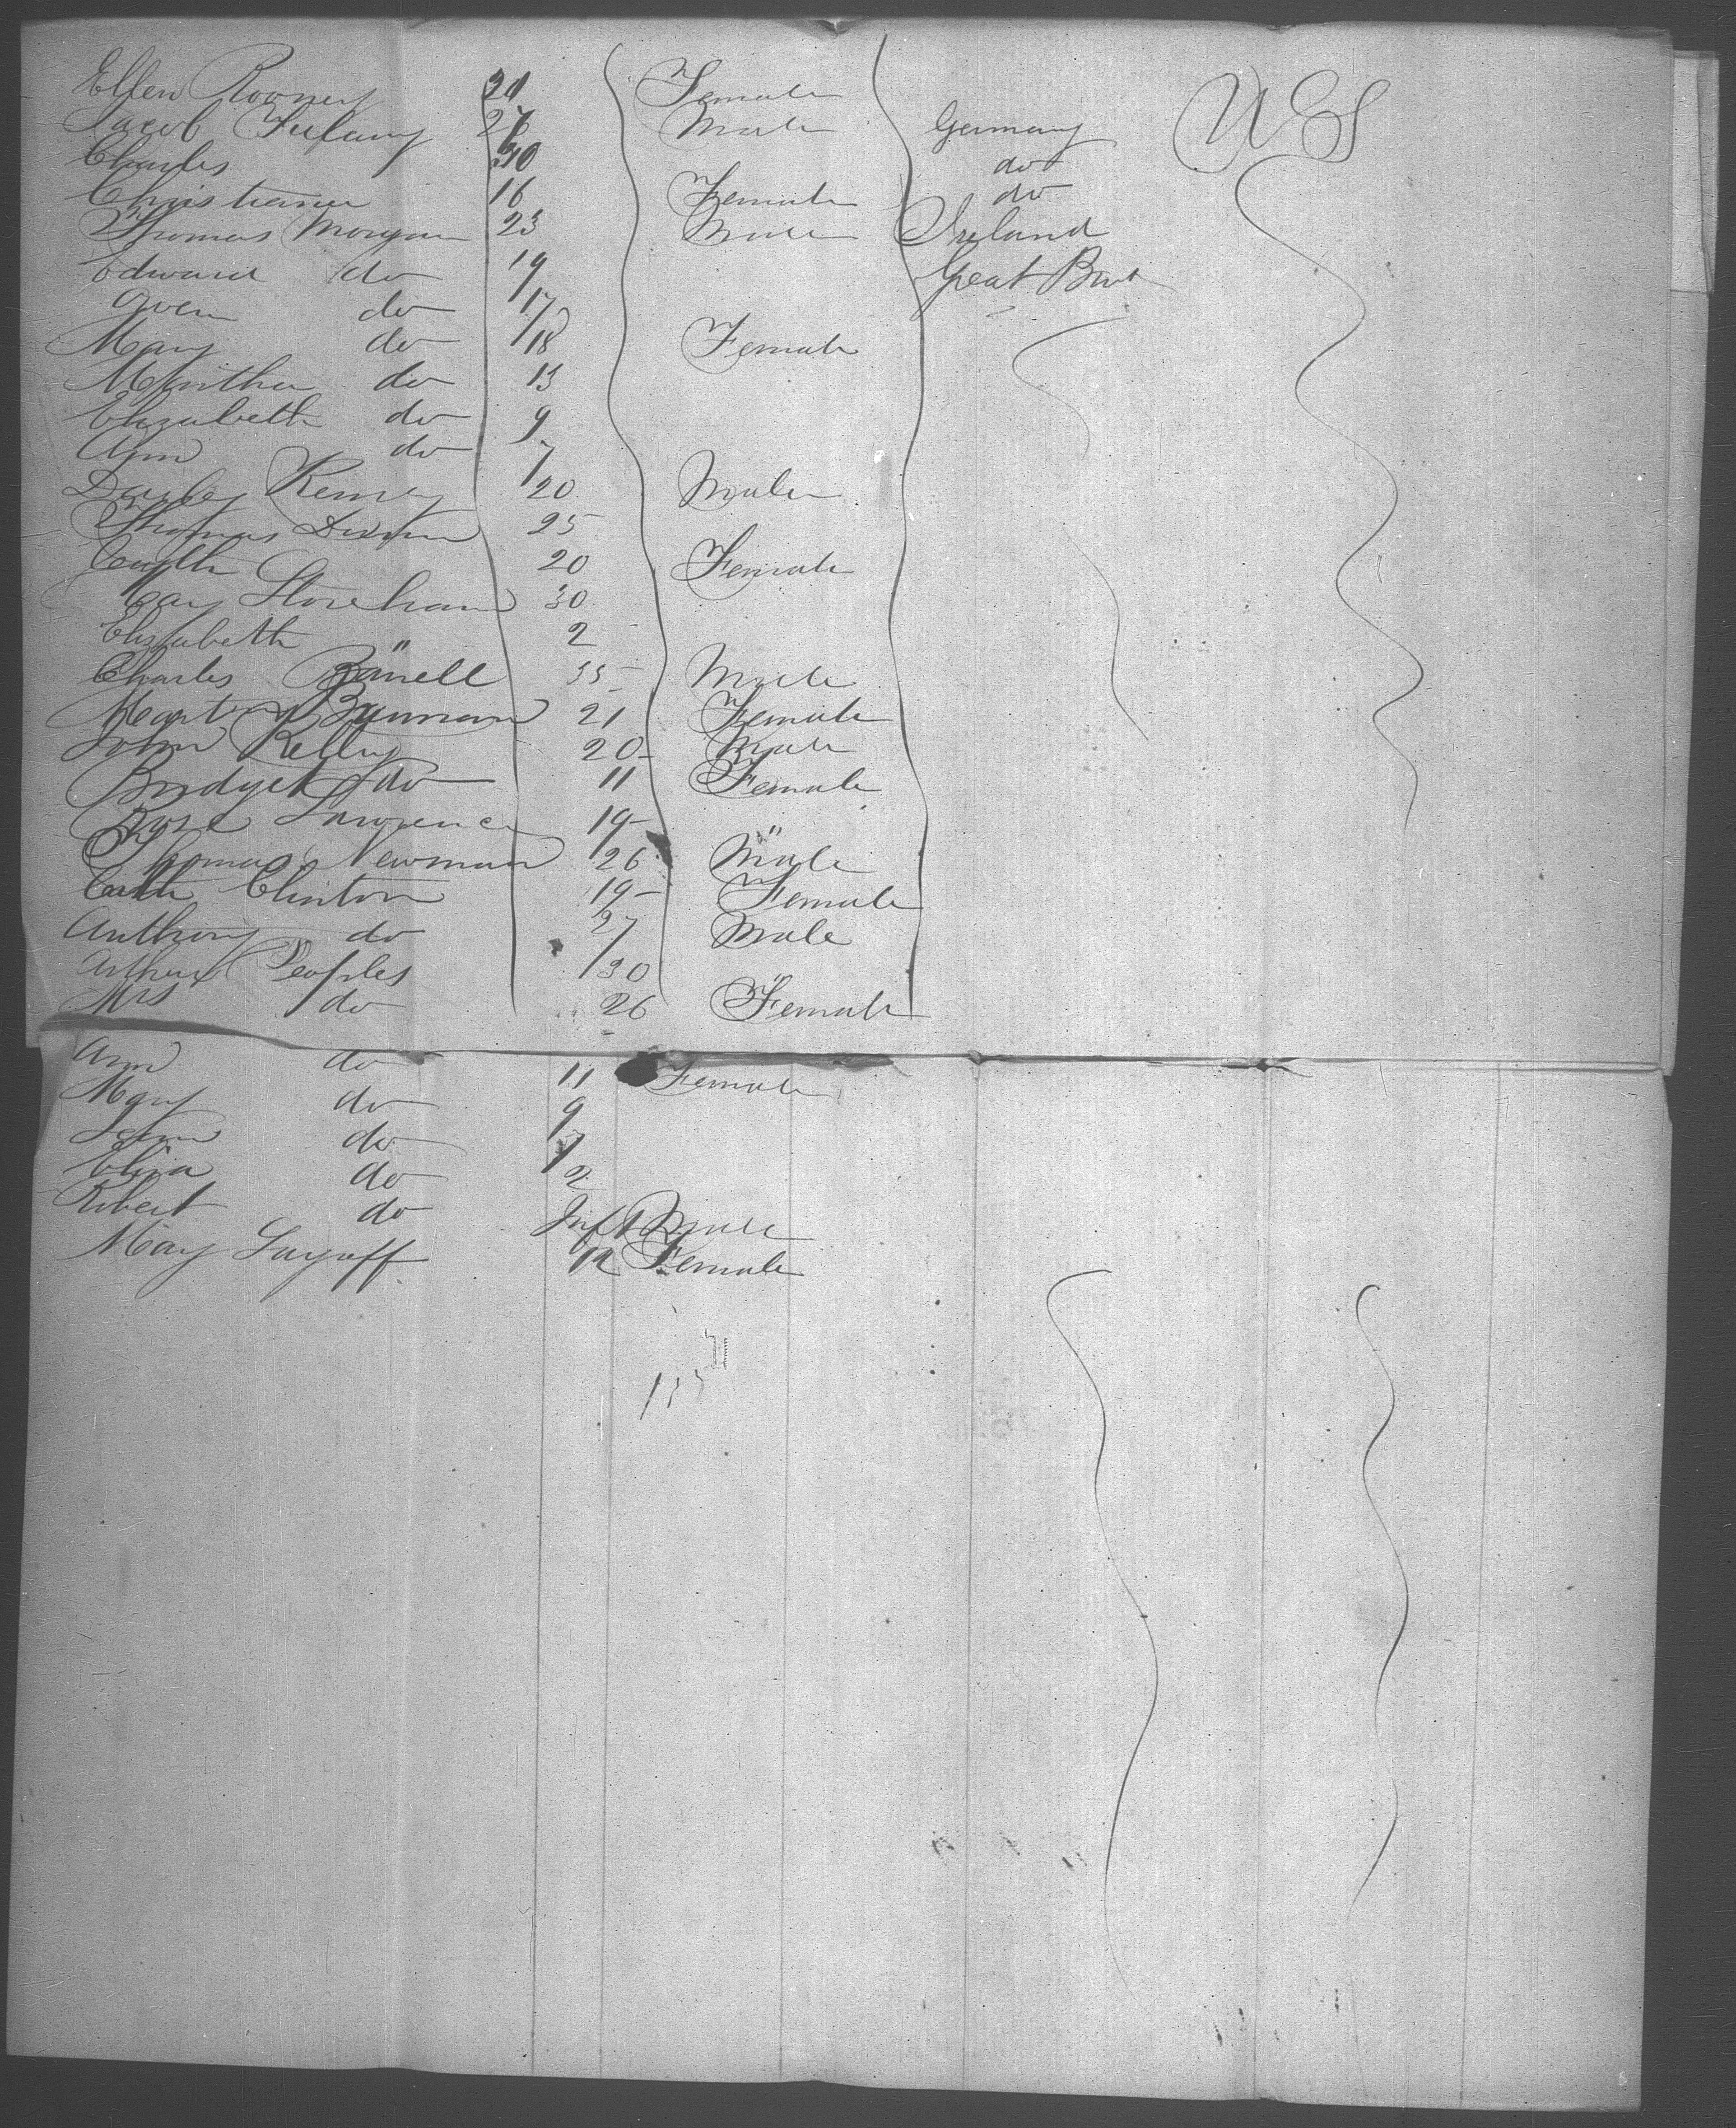 Ellen Rooney 20 Female U S
Jacob 27 Male Germany
Charles 30 do
Christiana 16 Female do
Thomas Morgan 23 Male Ireland
Edward do 19 Great Brit
Owen do 17
Mary do 18 Female
Martha do 13
Elizabeth do 9
Ann do 7
Kenney 20 Male
Thomas 25
Cath 20 Female
30
Elizabeth " 2
Charles 35 Male
21 Female
John Kelly 20 Male
Bridget do 11 Female
Rose Lawrence 19 "
Thomas Newman 26 Male
Cath Clinton 19 Female
Anthony do 27 Male
Arthur Peoples 30 "
Mrs do 26 Female
Ann do 11 Female
Mary do 9
do 7
Eliza do 2
Robert do Inft Male
Mary 12 Female